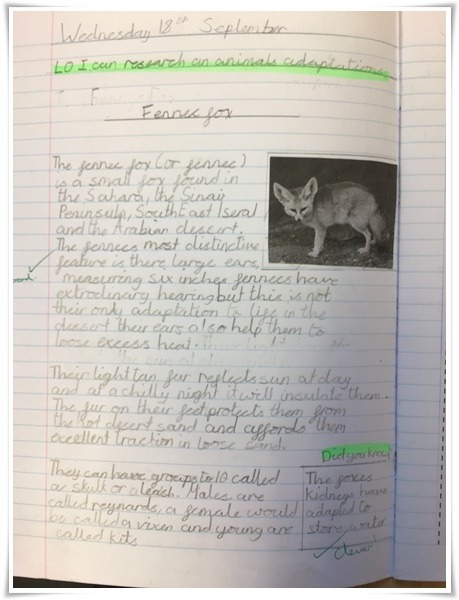 Wednesday 18th September
LO I can research an animals adaptations
Fennec fox
The fennec fox (or fennec)
is a small fox found in
the Sahara, the Sinai
Peninsula, South East Iseral
and the Arabian dessert.
The fennecs most distinctive
feature is there large ears,
measuring six inches fennecs have
extrodinary hearing but this is not
their only adaptation to life in the
dessert their ears also help them to
loose excess heat.
Their light tan fur reflects sun at day
and at a chilly night it will insulate them.
The fur on their feet protects them from
the hot desert sand and affords them
excellent traction in loose sand.
Did you know?
They can have groups to 10 called
or skulk or a leash. Males are
called reynards, a female would
be called a vixen and young are
called kits
The foxes
Kidneys have
adapted to
store water
clever!